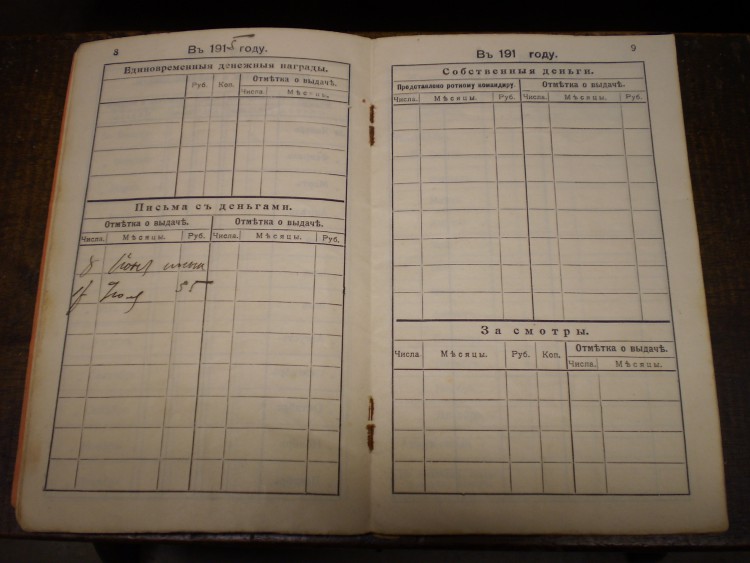 8
Въ 1915 году.
Единовременныя денежныя награды.
Руб. Коп. Отмѣтка о выдачѣ.
Числа. Мѣсяцъ.
Письма съ деньгами.
Отмѣтка о выдачѣ. Отмѣтка о выдачѣ.
Числа. Мѣсяцы. Руб. Числа. Мѣсяцы. Руб.
8
55
9
Въ 191 году.
Собственныя деньги.
Представлено ротному командиру. Отмѣтка о выдачѣ.
Числа. Мѣсяцы. Руб. Числа. Мѣсяцы. Руб.
За смотры.
Числа. Мѣсяцы. Руб. Коп. Отмѣтка о выдачѣ.
Числа. Мѣсяцы.